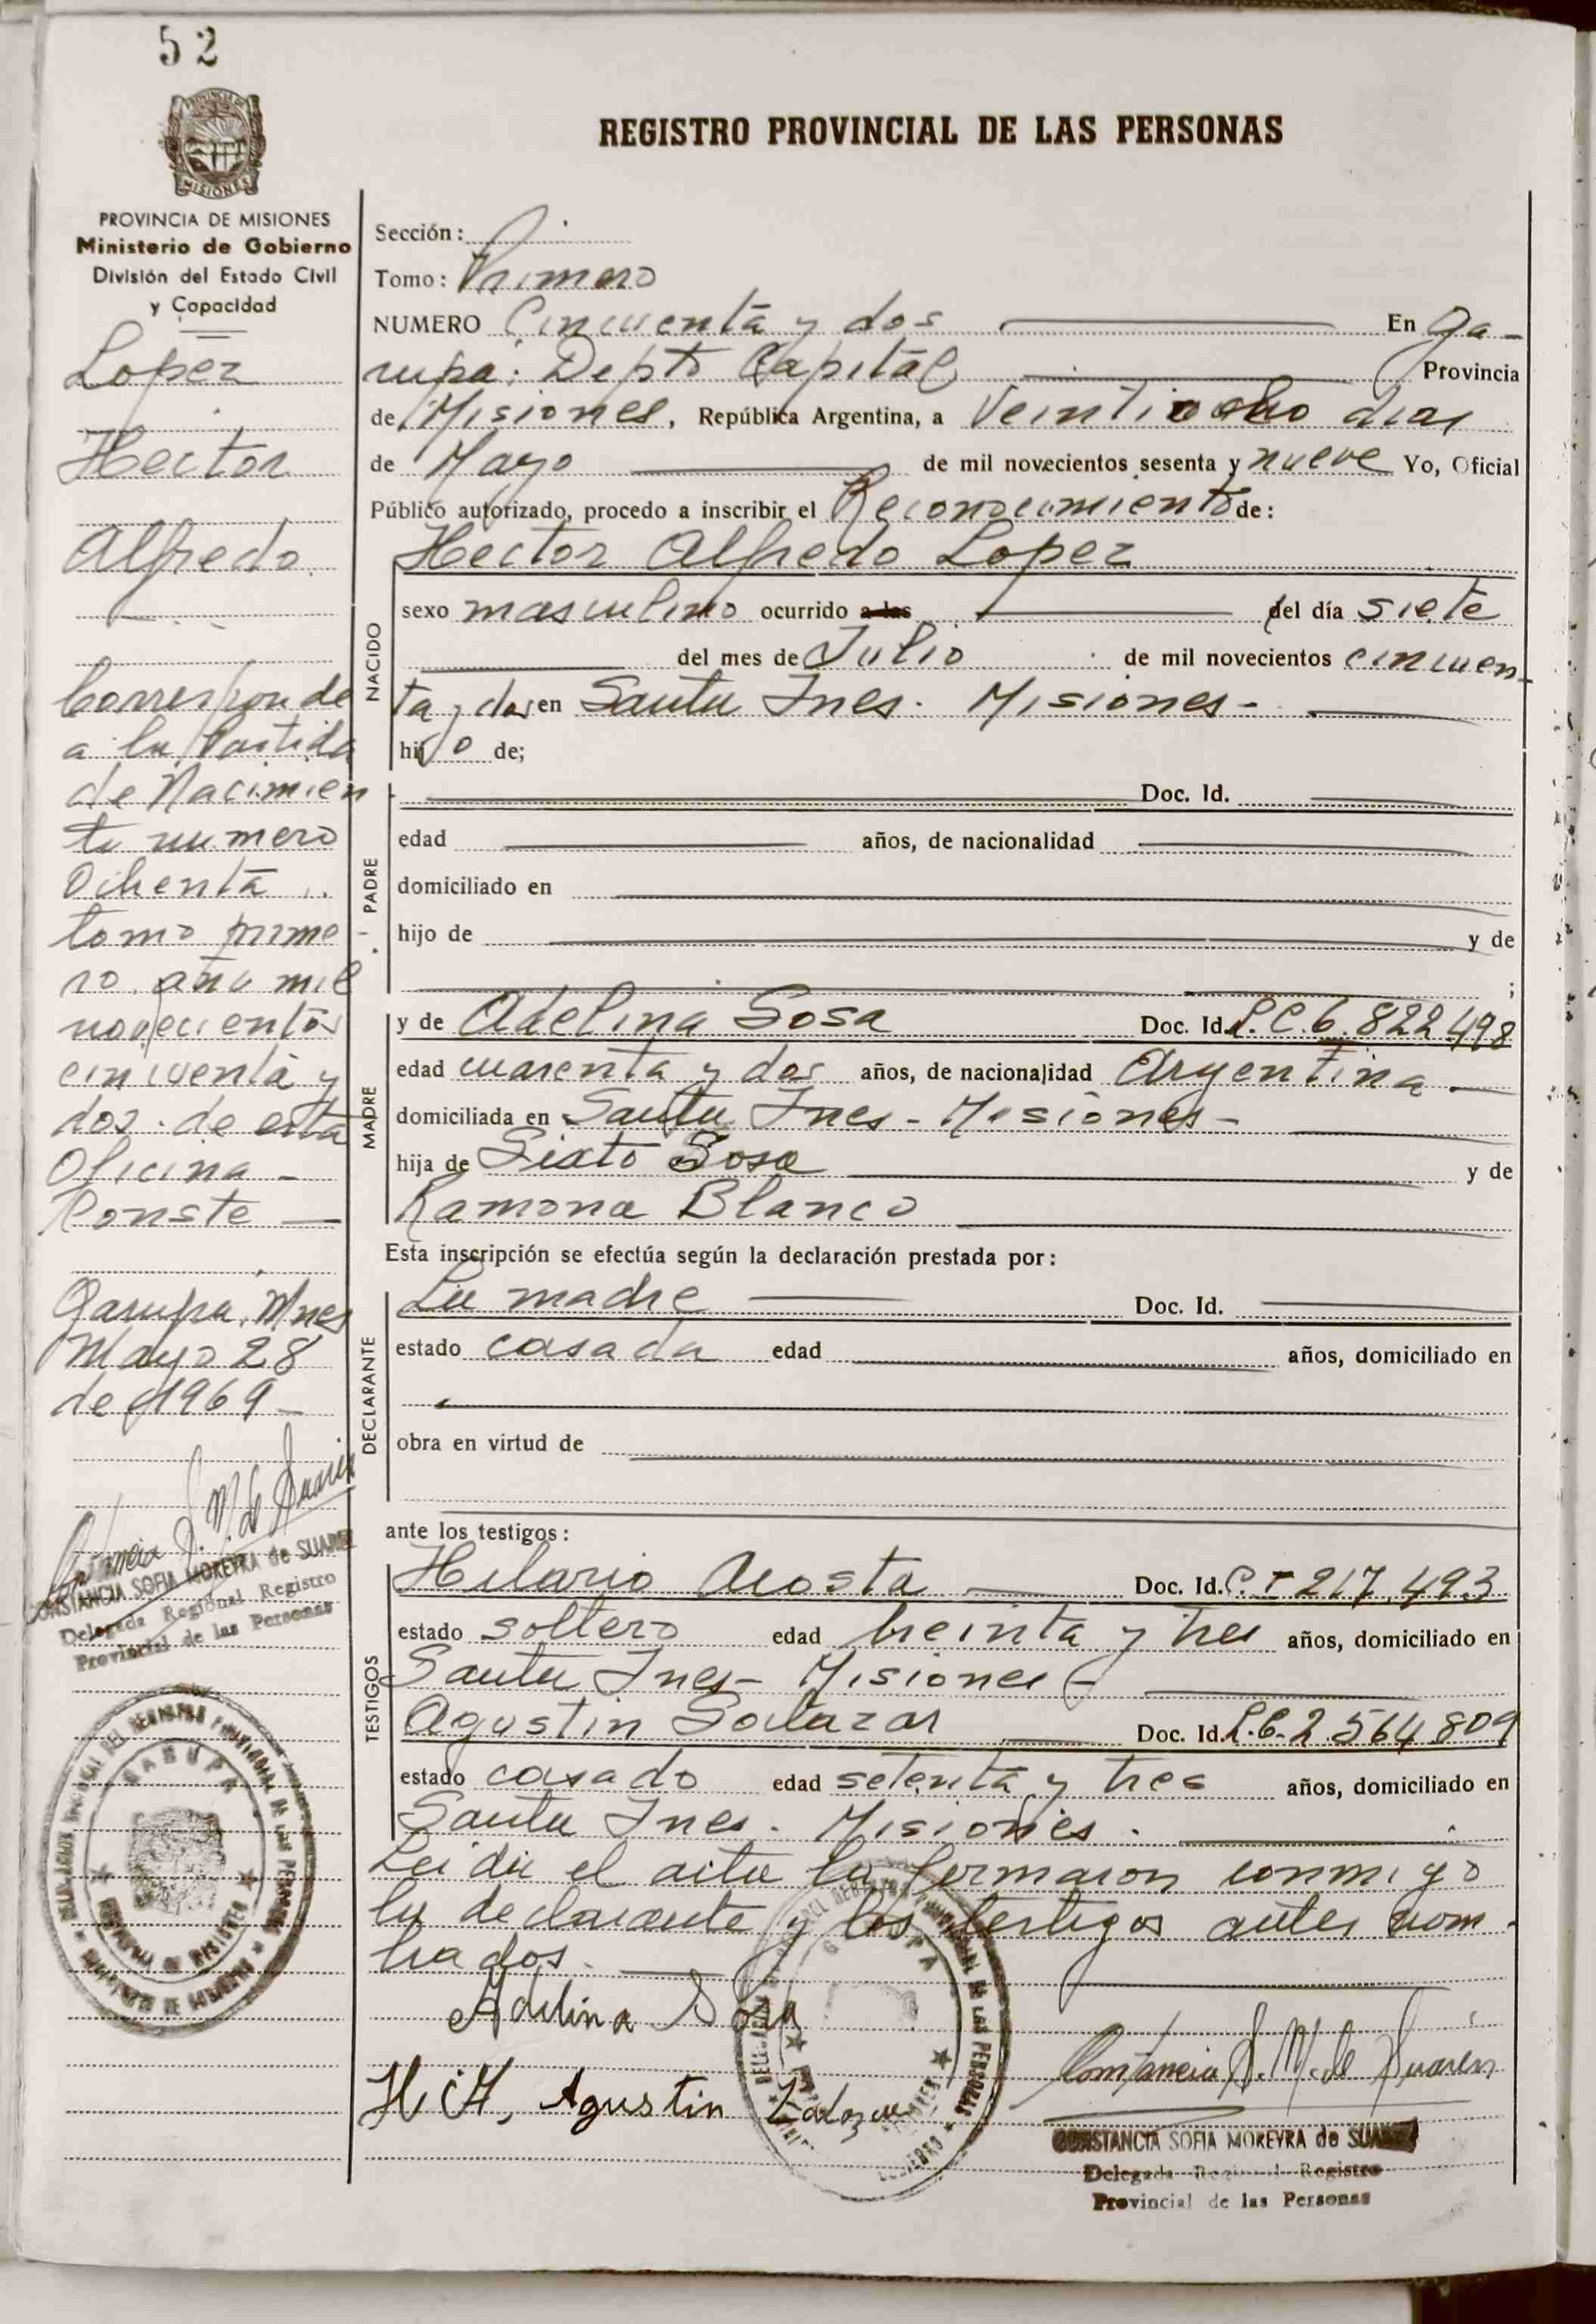 52
PROVINCIA DE MISIONES
Ministerio de Gobierno
División del Estado Civil
y Capacidad
Lopez
Hector
Alfredo
Corresponde
a la Partida
de Nacimien
to numero
Ochenta
tomo prime-
ro. año mil
novecientos
cincuenta y
dos. de esta
Oficina -
Conste —
Garupa, Mnes
Mayo 28
de 1969 -
Constancia S. M. de Suarez
CONSTANCIA SOFIA MOREYRA de SUAREZ
Delegada Regional Registro
Provincial de las Personas
GARUPA
REGISTRO PROVINCIAL DE LAS PERSONAS
Sección:
Tomo: Primero
NUMERO Cincuenta y dos En Ga-
rupa: Depto Capital Provincia
de Misiones, República Argentina, a Veintiocho dias
de Mayo de mil novecientos sesenta y nueve Yo, Oficial
Público autorizado, procedo a inscribir el Reconocimiento de:
NACIDO
Hector Alfredo Lopez
sexo masculino ocurrido a las del día siete
del mes de Julio de mil novecientos cincuen-
ta y dos en Santa Ines. Misiones -
hijo de;
PADRE
Doc. Id.
edad años, de nacionalidad
domiciliado en
hijo de y de
;
MADRE
y de Adelina Sosa Doc. Id. L.C. 6.822.498
edad cuarenta y dos años, de nacionalidad Argentina -
domiciliada en Santa Ines - Misiones -
hija de Sixto Sosa y de
Ramona Blanco
Esta inscripción se efectúa según la declaración prestada por:
DECLARANTE
La madre Doc. Id.
estado casada edad años, domiciliado en
obra en virtud de
ante los testigos:
TESTIGOS
Hilario Acosta Doc. Id. C. I 217.493
estado soltero edad treinta y tres años, domiciliado en
Santa Ines - Misiones -
Agustin Salazar Doc. Id. L.E. 2.564.809
estado casado edad setenta y tres años, domiciliado en
Santa Ines. Misiones.
Leida el acta la firmaron conmigo
la declarante y los testigos antes nom-
brados.
Adelina Sosa
H. A, Agustin
Constancia S. M. de Suarez
CONSTANCIA SOFIA MOREYRA de SUAREZ
Delegada Regional Registro
Provincial de las Personas